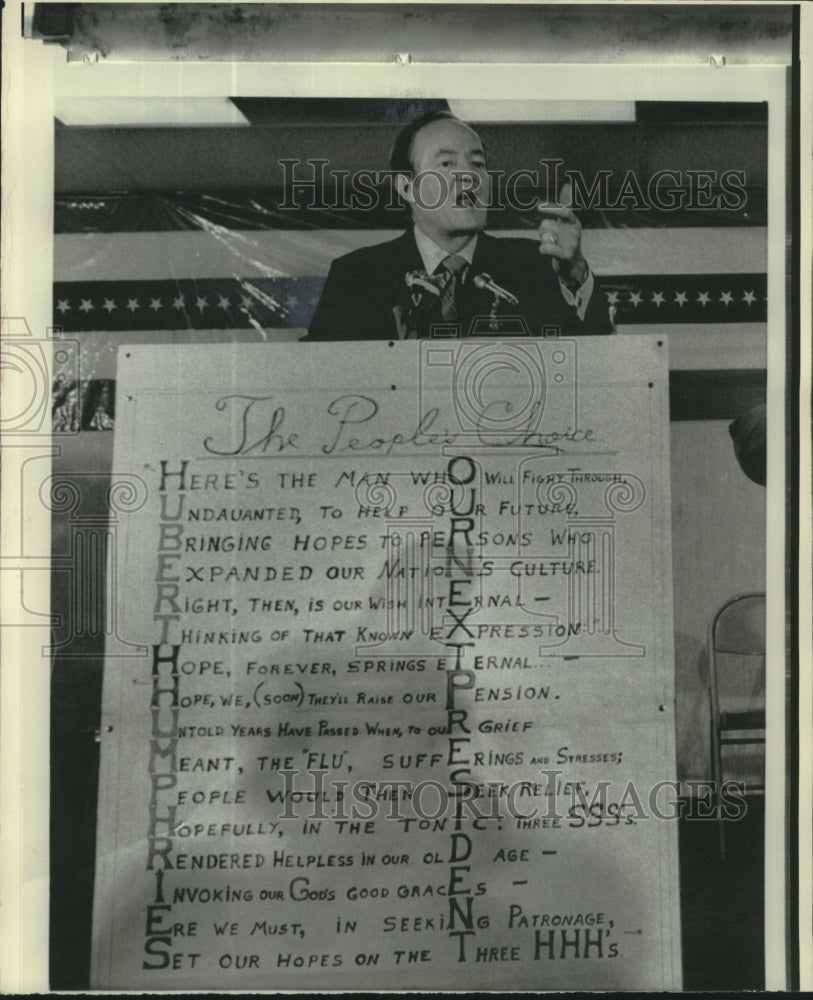 HISTORIC IMAGES
The Peoples Choice
HERE'S THE MAN WHO WILL FIGHT THROUGH,
UNDAUANTED, TO HELP OUR FUTURE,
BRINGING HOPES TO PERSONS WHO
EXPANDED OUR NATION'S CULTURE.
RIGHT, THEN, IS OUR WISH INTERNAL —
THINKING OF THAT KNOWN EXPRESSION:"
HOPE, FOREVER, SPRINGS ETERNAL... —
HOPE, WE, (SOON) THEY'LL RAISE OUR PENSION.
UNTOLD YEARS HAVE PASSED WHEN, TO OUR GRIEF
MEANT, THE "FLU", SUFFERINGS AND STRESSES;
PEOPLE WOULD THEN SEEK RELIEF,
HOPEFULLY, IN THE TONIC: THREE SSS's.
RENDERED HELPLESS IN OUR OLD AGE —
INVOKING OUR GOD'S GOOD GRACES —
ERE WE MUST, IN SEEKING PATRONAGE,
SET OUR HOPES ON THE THREE HHH's.
HISTORIC IMAGES